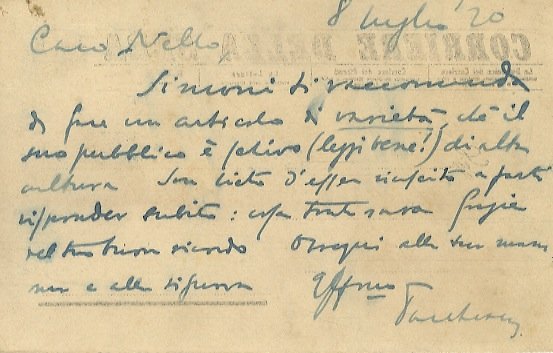 8 luglio 20
Caro Nello,
Simoni ti raccomanda
di fare un articolo di varietà, chè il
suo pubblico è schivo (leggi bene!) di alta
cultura Son lieto d'esser riuscito a farti
risponder subito: cosa tanto rara Grazie
del tuo buon ricordo Ossequi alla sua mam
ma e alla signora
CORRIERE DELLA